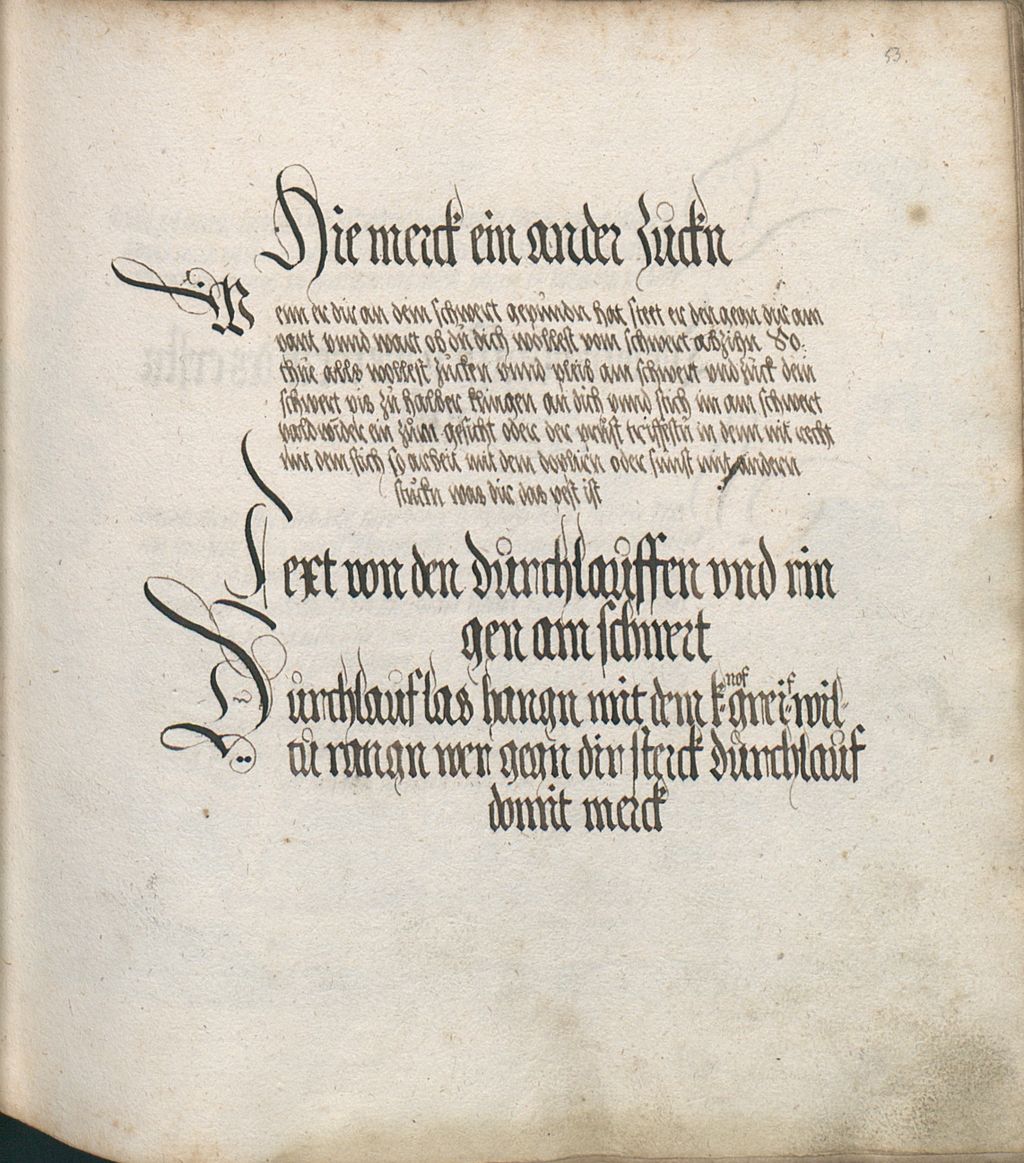 53.
Hie merck ein ander zuckn
Wenn er dir an dem schwert gepundn hat steet er den gegn dir am
pant vnnd wart ob du dich wollest vom schwert abzihn So
thue alls wollest zucken vnnd pleib am schwert vnd zuck dein
schwert bis zu halber klingen an dich vnnd stich im am schwert
bald wider ein zum gesicht oder der prust triffestu in denn nit recht
mit dem stich so arbeit mit dem duplirn oder sunst mit andern
stuckn was dir das pest ist
Text von den durchlauffen vnd rin
gen am schwert
Durchlauf las hangn mit dem knof greif wil
tu rangn wer gegn dir sterck durchlauf
domit merck